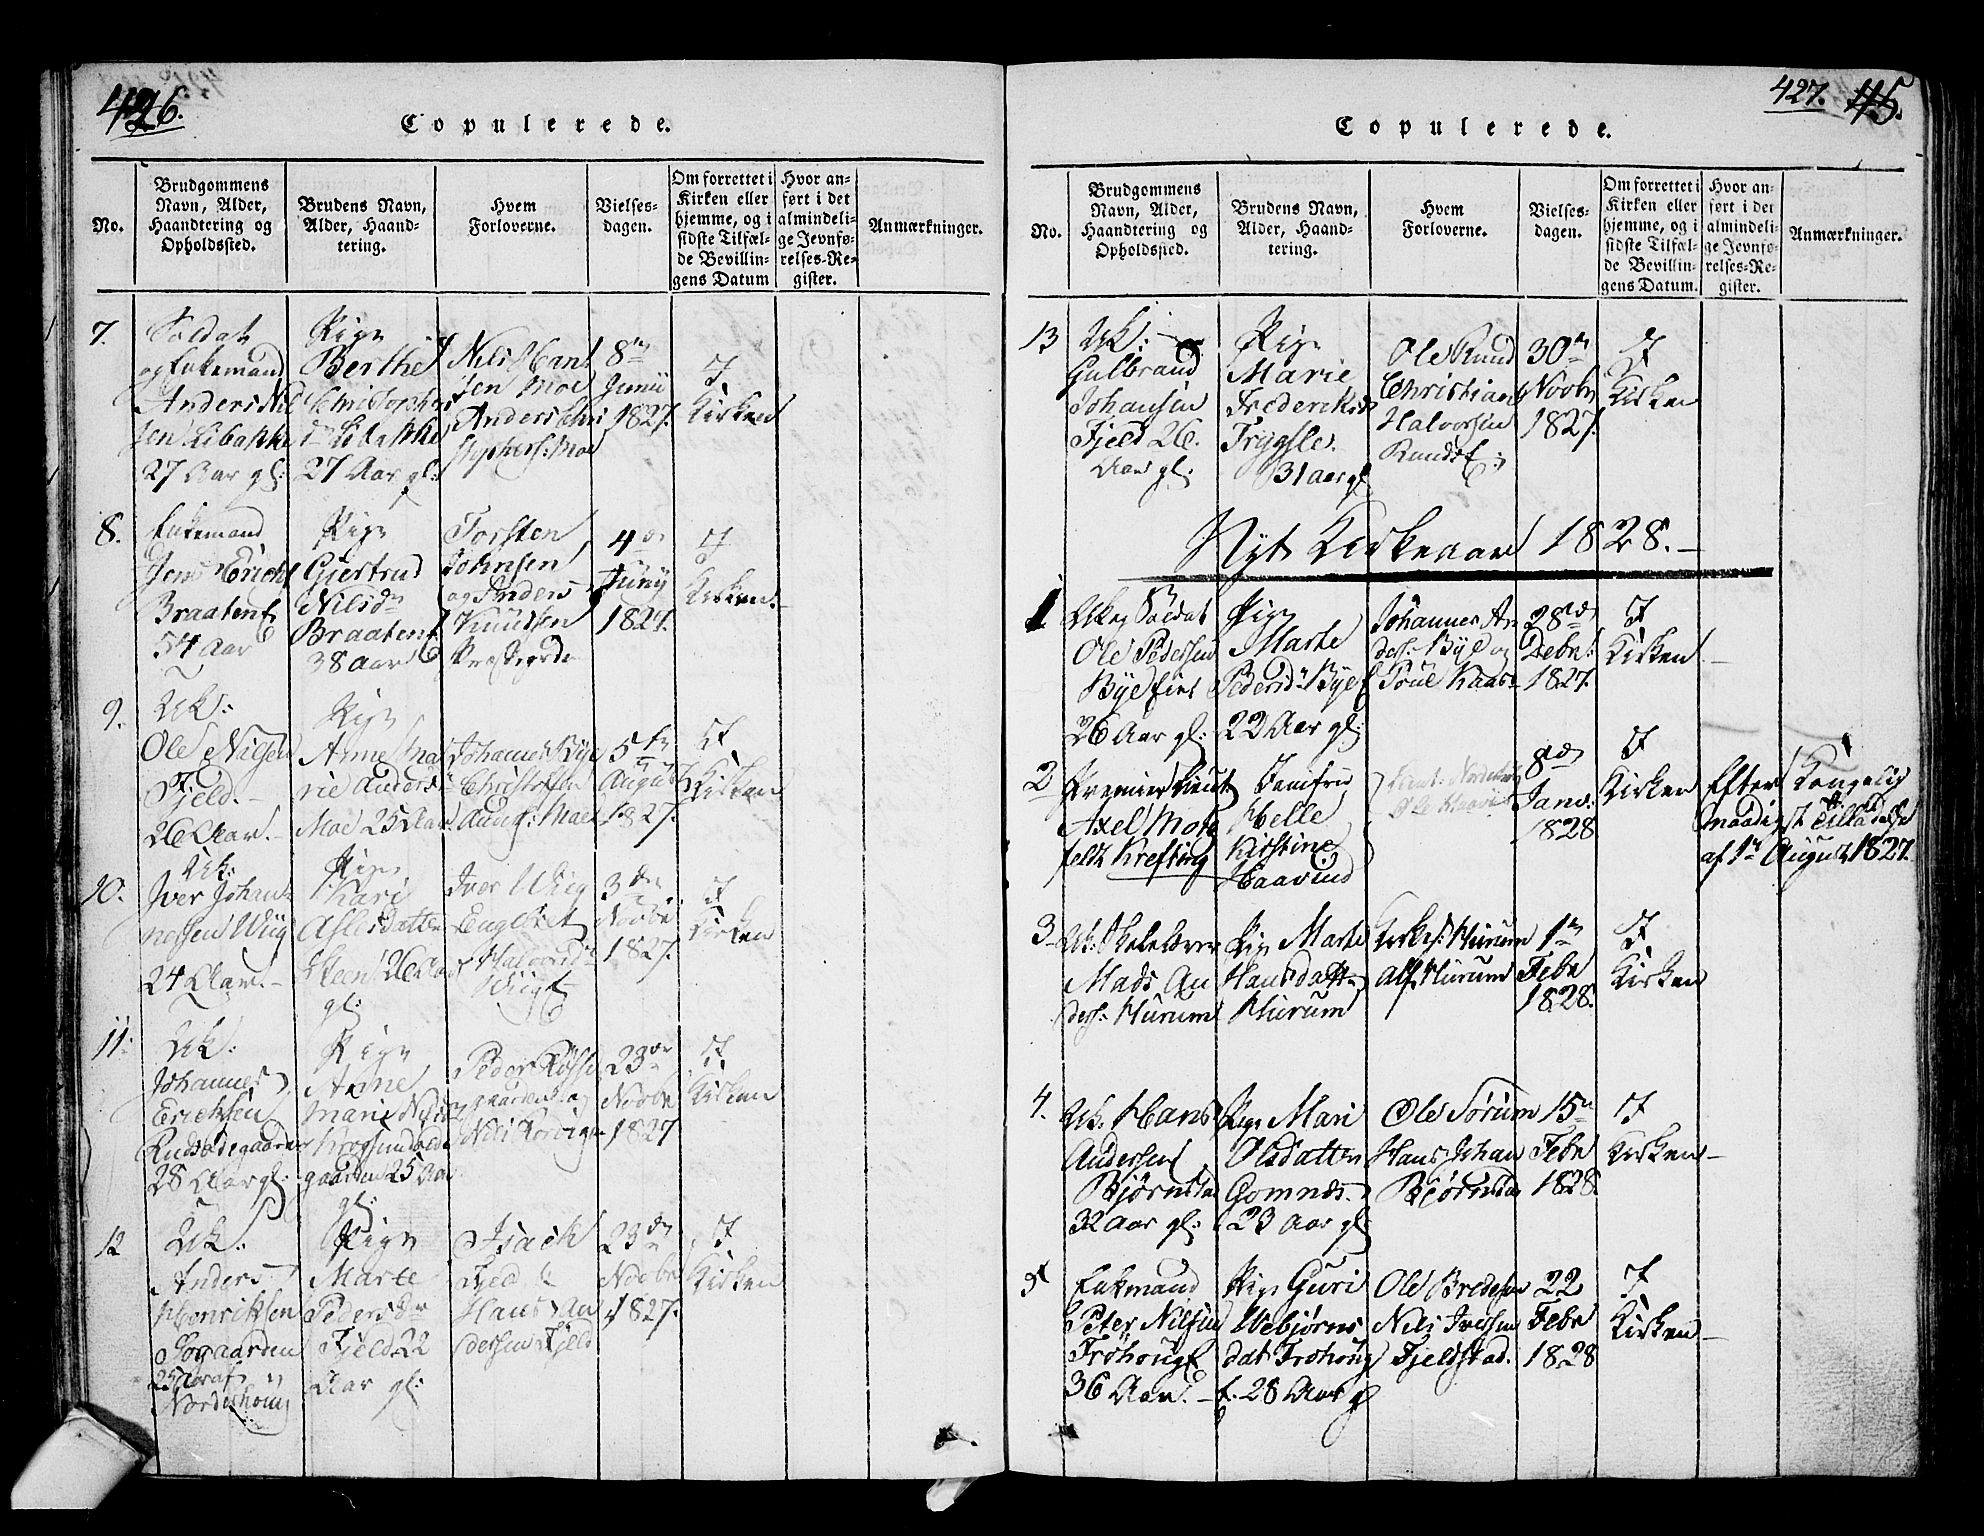 426.
Copulerede.
No.
Brudgommens
Navn, Alder,
Haandtering og
Opholdssted.
Brudens Navn,
Alder, Haand-
tering.
Hvem
Forloverne.
Vielses-
dagen.
Om forrettet i
Kirken eller
hjemme, og i
sidste Tilfæl-
de Bevillin-
gens Datum
Hvor an-
ført i det
almindeli-
ge Jevnfø-
relses-Re-
gister.
Anmærkninger.
7.
Soldat
og Enkemand
Anders Nil
sen Libakke
27 Aar gl:
Pige
Berthe
Christophs
Libakke
27 Aar gl:
Nils Hans
sen Moe
Anders Chri
stophers: Moe
8de
Junii
1827.
I
Kirken
8.
Enkemand
Jens Erichs
Braatenf
54 Aar
Pige
Giertrud
Nilsdr
Braatenf
38 Aar
Torsten
Johnsen
og Anders
Knudsen
4de
Juny
1827.
I
Kirken.
9.
Uk:
Ole Nilsen
Fjeld.
26 Aar.
Pige
Anne Ma
rie Anders
Moe 25 Aar
Johannes Bye
Christoffer
Moe
5te
August
1827.
I
Kirken
10.
Uk:
Iver Johan
nessen Wiig
24 Aar.
Pige
Kari
Aslesdatter
Steen 26 Aar
gl:
Iver Wiig
Engebret
Halvors
Wiigf
3de
Novbr
1827.
I
Kirken
11.
Uk:
Johannes
Erichsen
28 Aar gl:
Pige
Anne
Marie Nilsd
Krogsund
gaarden 25 Aar
gl:
Peder
gaarden og
Nils
23de
Novbr
1827
I
Kirken
12
Uk:
Anders
Henriksen
Gogaarden
25 Aar af
Norderhoug
Pige
Marte
Pedersdr
Fjeld 22
Aar gl:
Isach
Fjeld &
Hans An
dersen Fjeld
23de
Novbr
1827.
I
Kirken
427. 115.
Copulerede.
No.
Brudgommens
Navn, Alder,
Haandtering og
Opholdssted.
Brudens Navn,
Alder, Haand-
tering.
Hvem
Forloverne.
Vielses-
dagen.
Om forrettet i
Kirken eller
hjemme, og i
sidste Tilfæl-
de Bevillin-
gens Datum.
Hvor an-
ført i det
almindeli-
ge Jevnfø-
relses-Re-
gister.
Anmærkninger.
13
Uk:
Gulbrand
Johansen
Fjeld 26.
Aar gl:
Pige
Marie
Frederiksd
Frygsle.
31 Aar gl
Ole Rund
Christian
Halvorsen
Rundsf:
30te
Novbr
1827.
I
Kirken
Nyt Kirkeaar 1828.
1
Uk og Soldat
Ole Pedersen
Bye
26 Aar gl:
Pige
Marte
Pedersdr Byef
22 Aar gl:
Johannes An
ders: Bye og
Poul
28de
Debr:
1827.
I
Kirken
2
Premier Lieut
Axel Mote
feldt Krefting
Jomfru
Helle
Kirstine
Haavind
8de
Janv:
1828
I
Kirken
Efter Kongelig
naadigst Tilladelse
af 1te August 1827.
3
Uk: Skolelærer
Mads An
ders: Hurum
Pige Marte
Hansdatter
Hurum
Kirkes: Hurum
Alf Hurum
1te
Febr
1828.
I
Kirken
4.
Uk. Hans
Andersen
Bjørnsta
32 Aar gl:
Pige Mari
Olsdatter
Gomnæs.
23 Aar gl
Ole Sørum
Hans Johan
Bjørnsta
15de
Febr
1828.
I
Kirken
5
Enkemand
Peter Nilsen
Frøhougf
36 Aar.
Pige Guri
Webjørns
dat Frøhoug
f. 28 Aar gl
Ole Bredesen
Nils Iversen
Fjeldstad.
22
Febr
1828
I
Kirken